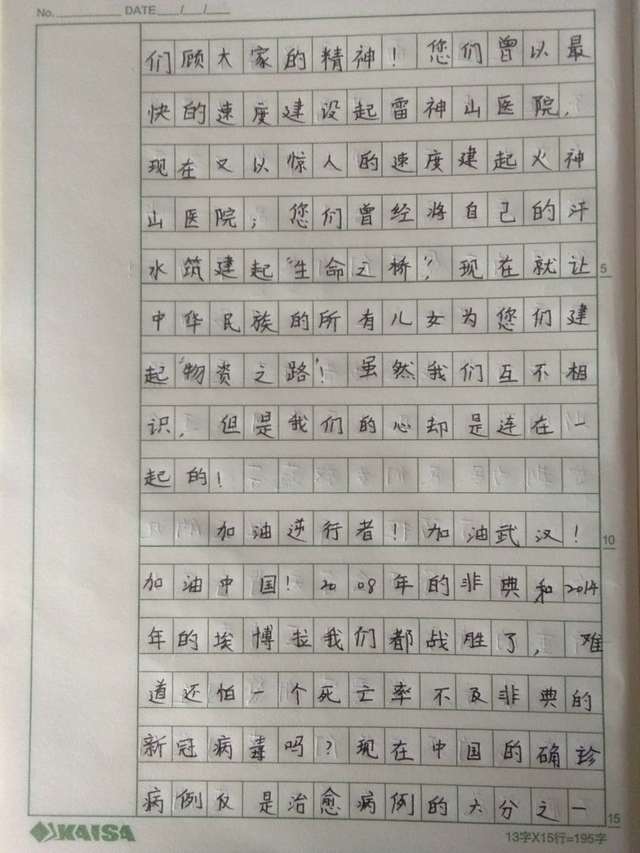 No. DATE / /
们顾大家的精神！您们曾以最
快的速度建设起雷神山医院，
现在又以惊人的速度建起火神
山医院；您们曾经将自己的汗
水筑建起“生命之桥”，现在就让
5
中华民族的所有儿女为您们建
起“物资之路”！虽然我们互不相
识，但是我们的心却是连在一
起的！
加油逆行者！加油武汉！
10
加油中国！2008年的非典和2014
年的埃博拉我们都战胜了，难
道还怕一个死亡率不及非典的
新冠病毒吗？现在中国的确诊
病例仅是治愈病例的六分之一
15
KAISA
13字X15行=195字